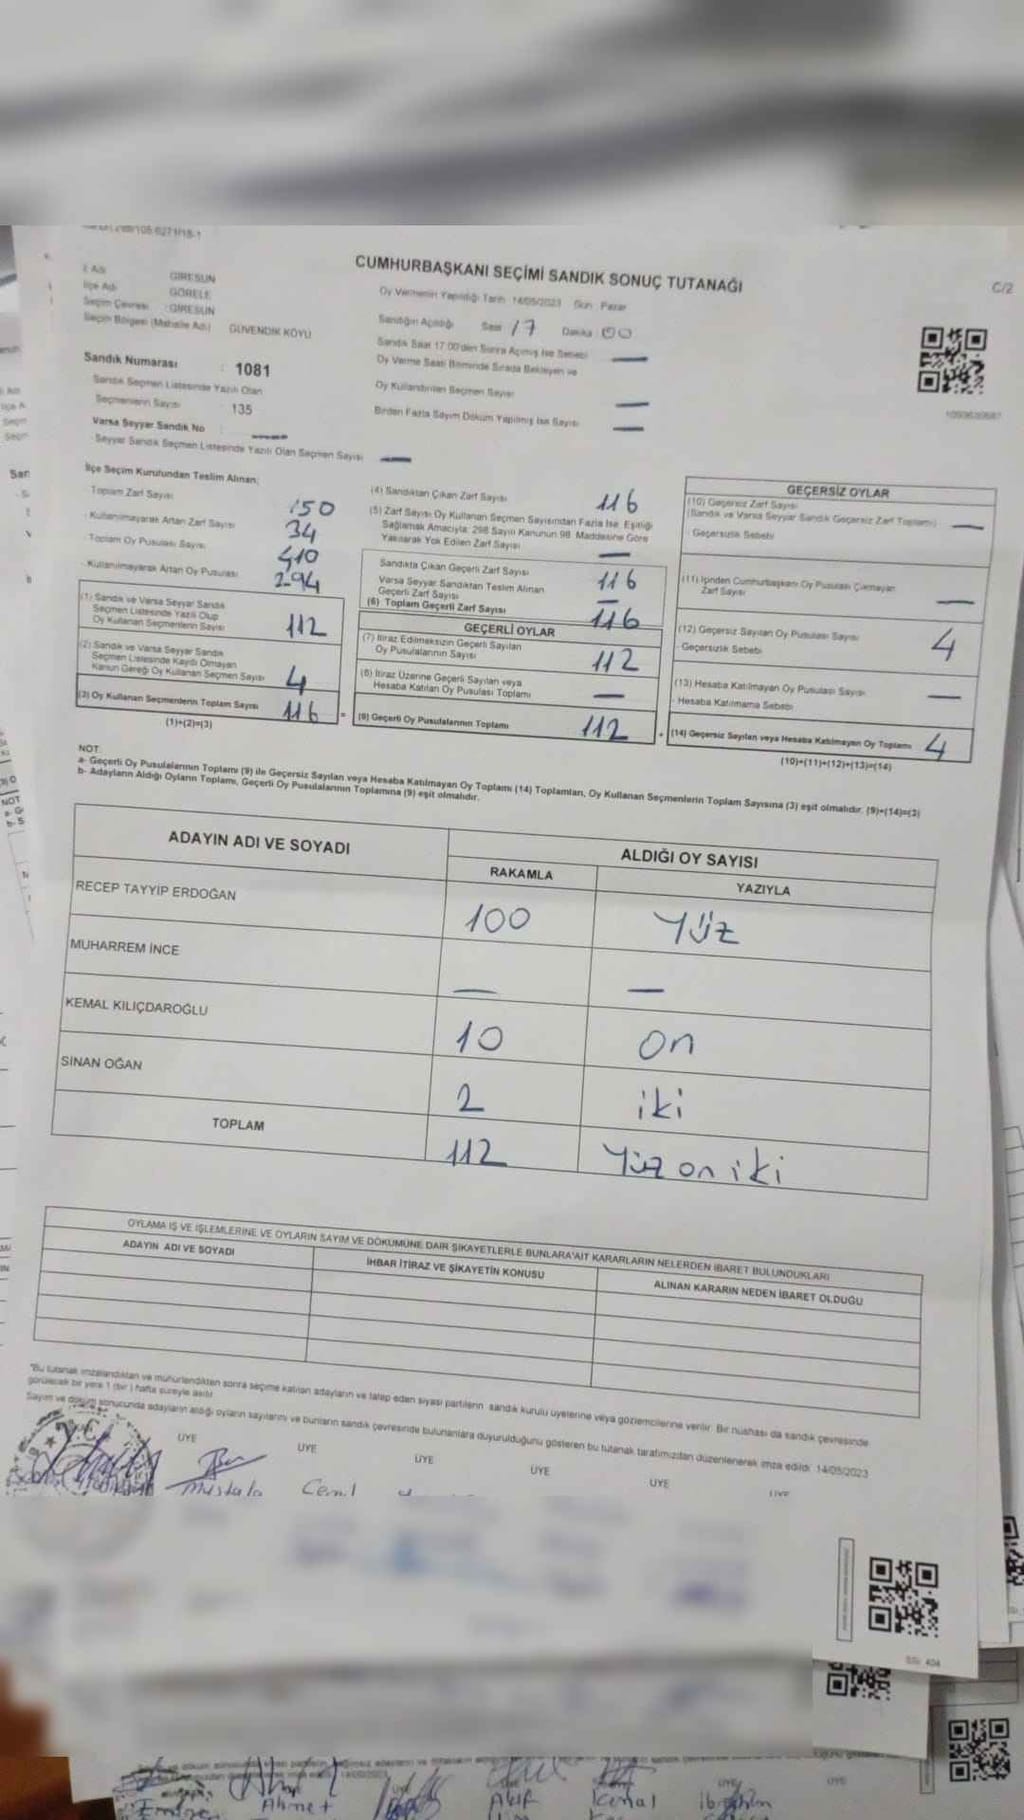 CUMHURBAŞKANI SEÇİMİ SANDIK SONUÇ TUTANAĞI
C/2
İl Adı GİRESUN
İlçe Adı GÖRELE
Seçim Çevresi : GİRESUN
Seçim Bölgesi (Mahalle Adı) GÜVENDİK KÖYÜ
Oy Vermenin Yapıldığı Tarih 14/05/2023 Gün : Pazar
Sandığın Açıldığı Saat 17 Dakika : 00
Sandık Saat 17.00'den Sonra Açılmış İse Sebebi —
Oy Verme Saati Bitiminde Sırada Bekleyen ve
Oy Kullandırılan Seçmen Sayısı —
Birden Fazla Sayım Döküm Yapılmış İse Sayısı —
Sandık Numarası : 1081
Sandık Seçmen Listesinde Yazılı Olan
Seçmenlerin Sayısı : 135
Varsa Seyyar Sandık No : —
Seyyar Sandık Seçmen Listesinde Yazılı Olan Seçmen Sayısı —
İlçe Seçim Kurulundan Teslim Alınan;
Toplam Zarf Sayısı 150
Kullanılmayarak Artan Zarf Sayısı 34
Toplam Oy Pusulası Sayısı 410
Kullanılmayarak Artan Oy Pusulası 294
(1) Sandık ve Varsa Seyyar Sandık
Seçmen Listesinde Yazılı Olup
Oy Kullanan Seçmenlerin Sayısı 112
(2) Sandık ve Varsa Seyyar Sandık
Seçmen Listesinde Kaydı Olmayan
Kanun Gereği Oy Kullanan Seçmen Sayısı 4
(3) Oy Kullanan Seçmenlerin Toplam Sayısı 116
(1)+(2)=(3)
(4) Sandıktan Çıkan Zarf Sayısı 116
(5) Zarf Sayısı Oy Kullanan Seçmen Sayısından Fazla İse, Eşitliği
Sağlamak Amacıyla, 298 Sayılı Kanunun 98. Maddesine Göre
Yakılarak Yok Edilen Zarf Sayısı —
Sandıkta Çıkan Geçerli Zarf Sayısı 116
Varsa Seyyar Sandıktan Teslim Alınan
Geçerli Zarf Sayısı —
(6) Toplam Geçerli Zarf Sayısı 116
GEÇERLİ OYLAR
(7) İtiraz Edilmeksizin Geçerli Sayılan
Oy Pusulalarının Sayısı 112
(8) İtiraz Üzerine Geçerli Sayılan veya
Hesaba Katılan Oy Pusulası Toplamı —
(9) Geçerli Oy Pusulalarının Toplamı 112
GEÇERSİZ OYLAR
(10) Geçersiz Zarf Sayısı
(Sandık ve Varsa Seyyar Sandık Geçersiz Zarf Toplamı) —
- Geçersizlik Sebebi
(11) İçinden Cumhurbaşkanı Oy Pusulası Çıkmayan
Zarf Sayısı —
(12) Geçersiz Sayılan Oy Pusulası Sayısı 4
- Geçersizlik Sebebi
(13) Hesaba Katılmayan Oy Pusulası Sayısı —
- Hesaba Katılmama Sebebi
(14) Geçersiz Sayılan veya Hesaba Katılmayan Oy Toplamı 4
(10)+(11)+(12)+(13)=(14)
NOT:
a- Geçerli Oy Pusulalarının Toplamı (9) ile Geçersiz Sayılan veya Hesaba Katılmayan Oy Toplamı (14) Toplamları, Oy Kullanan Seçmenlerin Toplam Sayısına (3) eşit olmalıdır. (9)+(14)=(3)
b- Adayların Aldığı Oyların Toplamı, Geçerli Oy Pusulalarının Toplamına (9) eşit olmalıdır.
ADAYIN ADI VE SOYADI ALDIĞI OY SAYISI
RAKAMLA YAZIYLA
RECEP TAYYİP ERDOĞAN 100 Yüz
MUHARREM İNCE — —
KEMAL KILIÇDAROĞLU 10 on
SİNAN OĞAN 2 iki
TOPLAM 112 Yüz on iki
OYLAMA İŞ VE İŞLEMLERİNE VE OYLARIN SAYIM VE DÖKÜMÜNE DAİR ŞİKAYETLERLE BUNLARA AİT KARARLARIN NELERDEN İBARET BULUNDUKLARI
ADAYIN ADI VE SOYADI İHBAR İTİRAZ VE ŞİKAYETİN KONUSU ALINAN KARARIN NEDEN İBARET OLDUĞU
*Bu tutanak imzalandıktan ve mühürlendikten sonra seçime katılan adayların ve talep eden siyasi partilerin sandık kurulu üyelerine veya gözlemcilerine verilir. Bir nüshası da sandık çevresinde
görülecek bir yere 1 (bir) hafta süreyle asılır.
Sayım ve döküm sonucunda adayların aldığı oyların sayılarını ve bunların sandık çevresinde bulunanlara duyurulduğunu gösteren bu tutanak tarafımızdan düzenlenerek imza edildi. 14/05/2023
T.C.
ÜYE ÜYE ÜYE ÜYE ÜYE ÜYE
Mustafa Cemil
SSı: 404
Ahmet Akif Kemal İbrahim